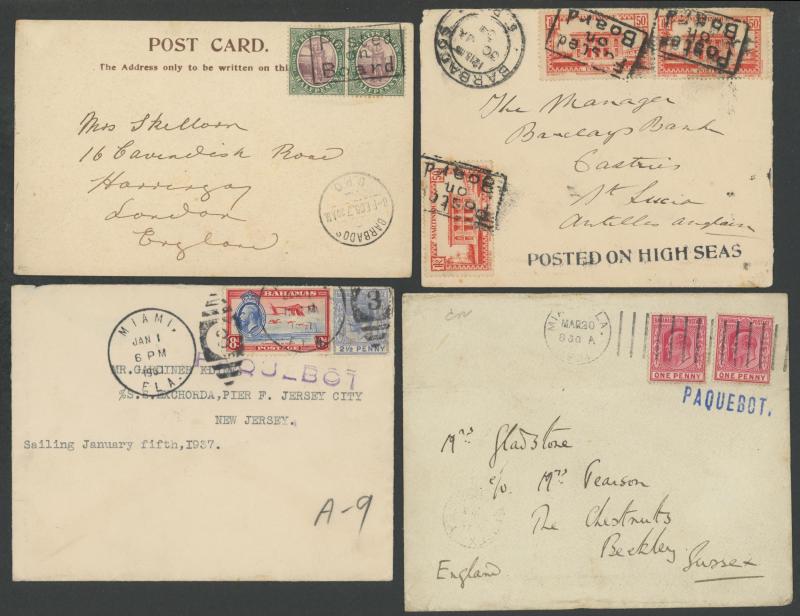 POST CARD.
The Address only to be written on thi
HALFPENNY
Board
Mrs Skelloon
16 Cavendish Road
Harringay
London
England
BARBADOS
G.P.O
BARBADOS
50
50
Posted
on
Board
Posted
on
Board
The Manager
Barclays Bank
Castries
St Lucia
Antilles Anglaises
MARTINIQUE
50
Posted
on
Board
POSTED ON HIGH SEAS
MIAMI.
JAN 1
6 PM
193
FLA.
BAHAMAS
8D
POSTAGE
3
2½ PENNY
PAQUEBOT
MR. GARDINER
%S.S.EXCHORDA,PIER F. JERSEY CITY
NEW JERSEY.
Sailing January fifth,1937.
A-9
MIAMI, FLA.
MAR 30
8 30 A
ONE PENNY
ONE PENNY
PAQUEBOT.
Mrs Gladstone
c/o Mrs Pearson
The Chestnuts
Beckley
Sussex
England